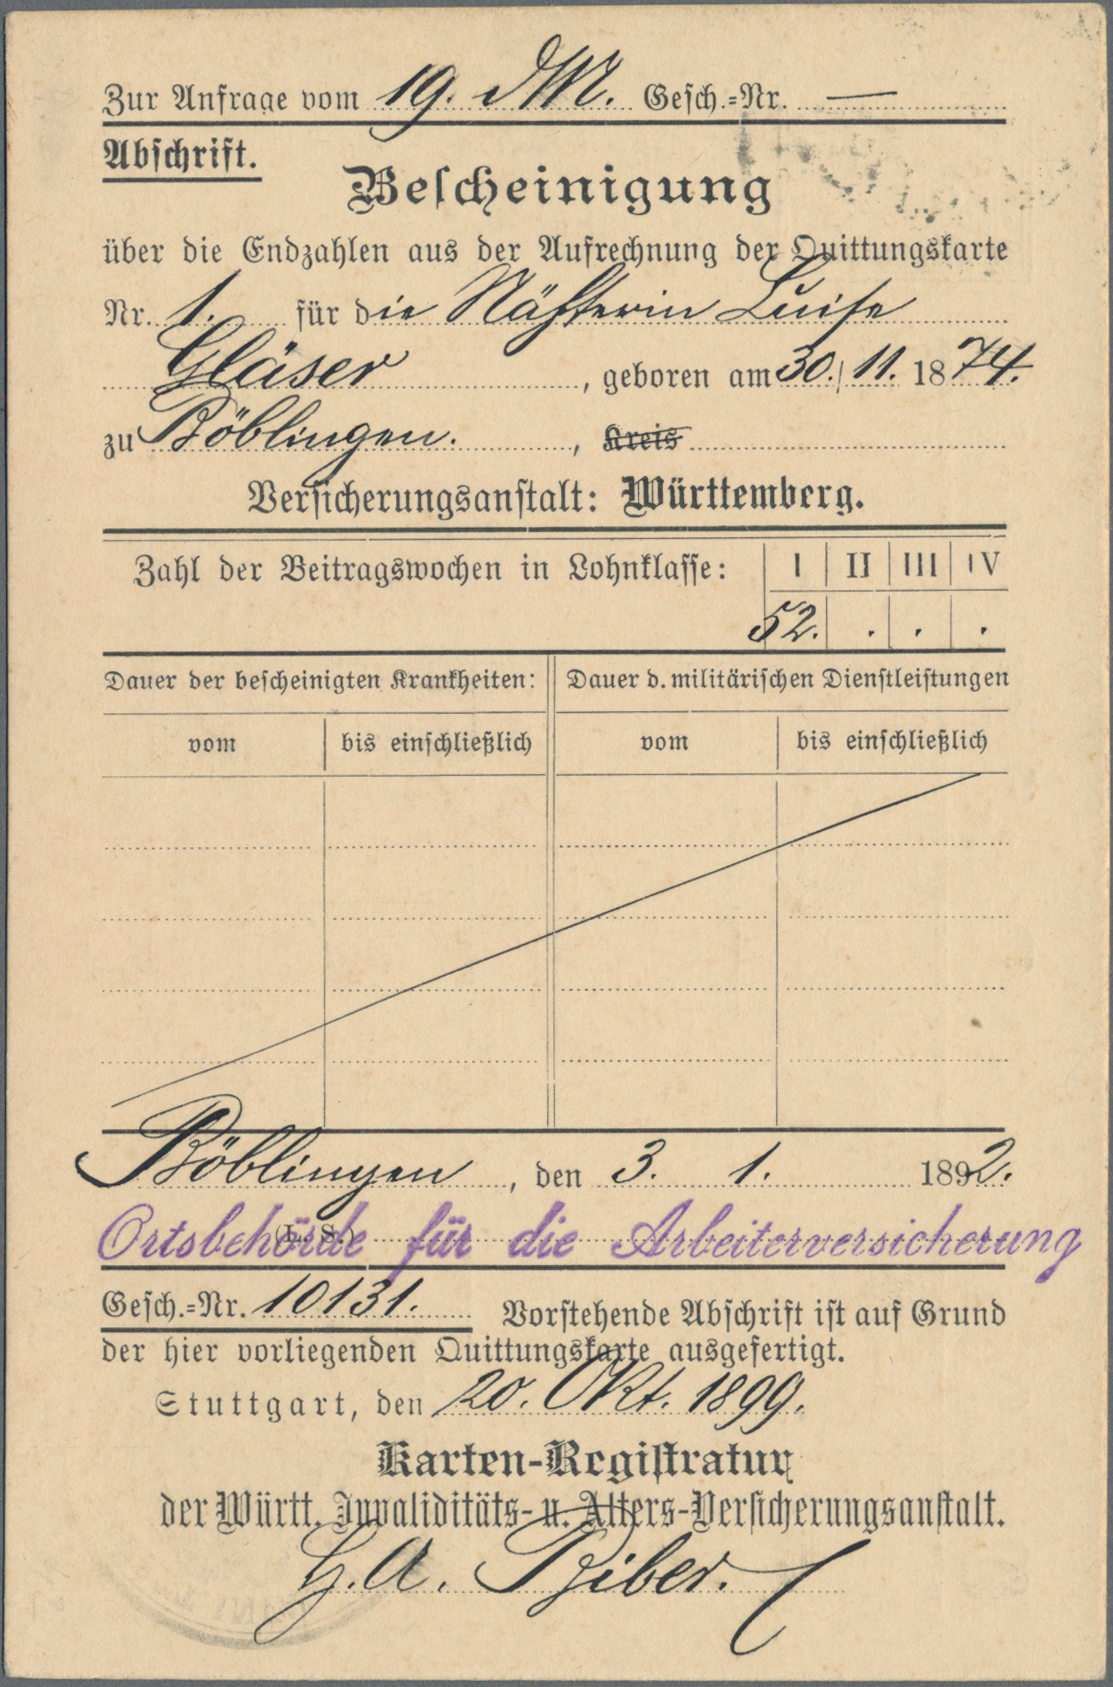 Zur Anfrage vom 19. d.M. Gesch.=Nr. —
Abschrift.
Bescheinigung
über die Endzahlen aus der Aufrechnung der Quittungskarte
Nr. 1. für die Nähterin Luise
Gläser, geboren am 30. 11. 1874.
zu Böblingen., Kreis
Versicherungsanstalt: Württemberg.
Zahl der Beitragswochen in Lohnklasse: I II III IV
52. . . .
Dauer der bescheinigten Krankheiten: Dauer d. militärischen Dienstleistungen
vom bis einschließlich vom bis einschließlich
Böblingen, den 3. 1. 1892.
(L. S.)
Ortsbehörde für die Arbeiterversicherung
Gesch.=Nr. 10131. Vorstehende Abschrift ist auf Grund
der hier vorliegenden Quittungskarte ausgefertigt.
Stuttgart, den 20. Okt. 1899.
Karten-Registratur
der Württ. Invaliditäts- u. Alters-Versicherungsanstalt.
Biber.